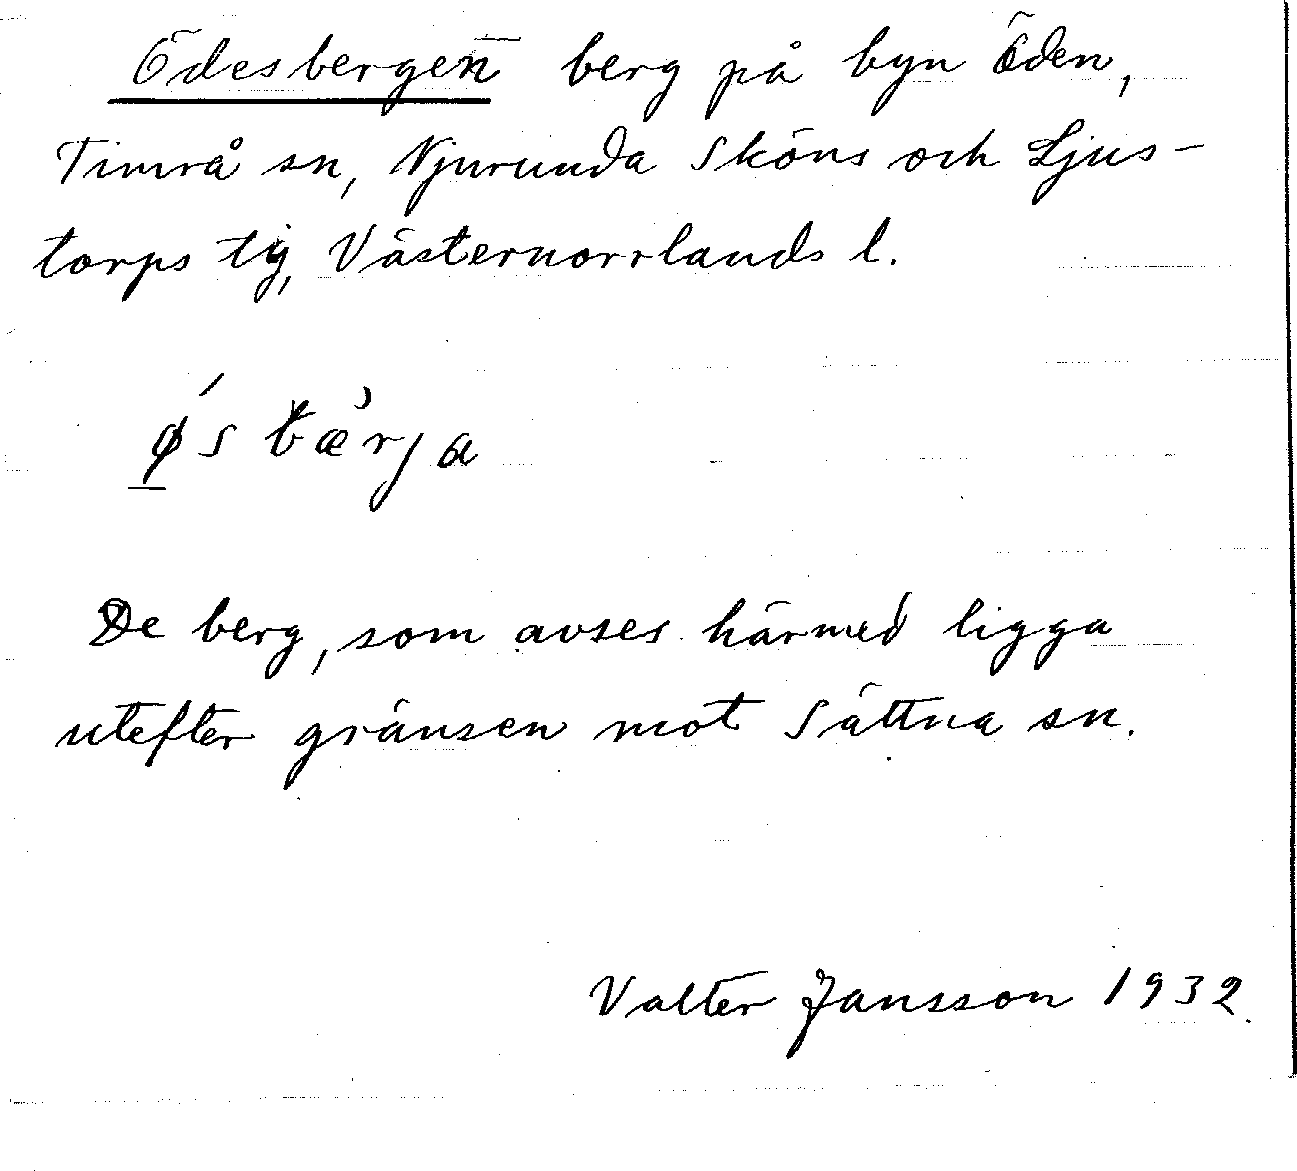 Ödesbergen berg på byn Öden,
Timrå sn, Njurunda Sköns och Ljus-
torps tg, Västernorrlands l.
ǿs bær̀ja
De berg, som avses härmed ligga
utefter gränsen mot Sättna sn.
Valter Jansson 1932.